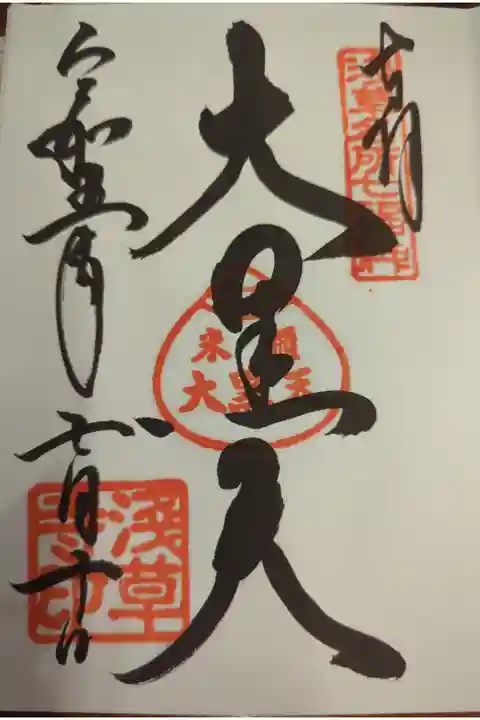 奉拝
浅草名所七福神
大黒天
大黒天
令和五年
七月十日
浅草寺印